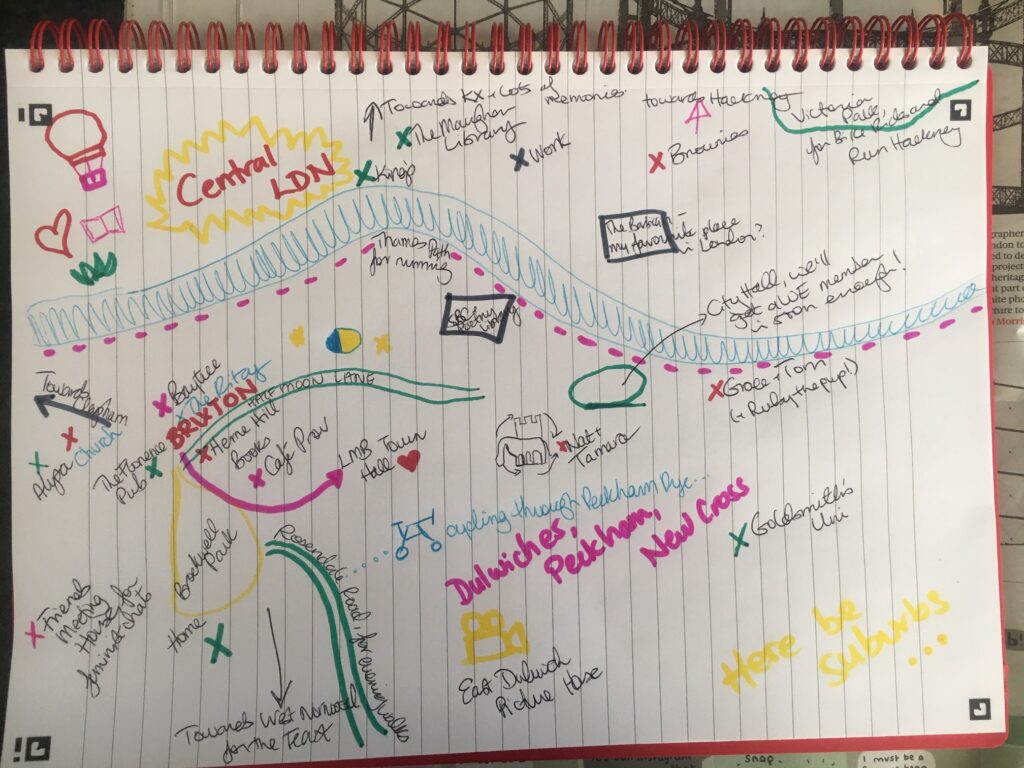 Towards KX + Lots of memories
The Maughan
Library
King's
Work
towards Hackney
Brownies
Victoria
Park,
for Bike Rides and
Run Hackney
Central
LDN
Thames Path
for running
The Barbican -
my favourite place
in London?
City Hall, we'll
get a WE member
in soon enough!
Library
Grace + Tom
(+ Ruby the pup!)
Towards Clapham
Church
Baytree
+ The Ritzy
BRIXTON
HALF MOON LANE
Herne Hill
Books
Café Prov
The Florence
Pub
LMB Town
Hall
Nat +
Tamara
cycling through Peckham Rye...
Dulwiches,
Peckham,
New Cross
Goldsmith's
Uni
Brockwell
Park
Rosendale Road for evening walks
Friends
Meeting
House for
feminist chats
Home
Towards West Norwood
for the Feast
East Dulwich
Picture House
Here be
suburbs
...
snap.
I must be a